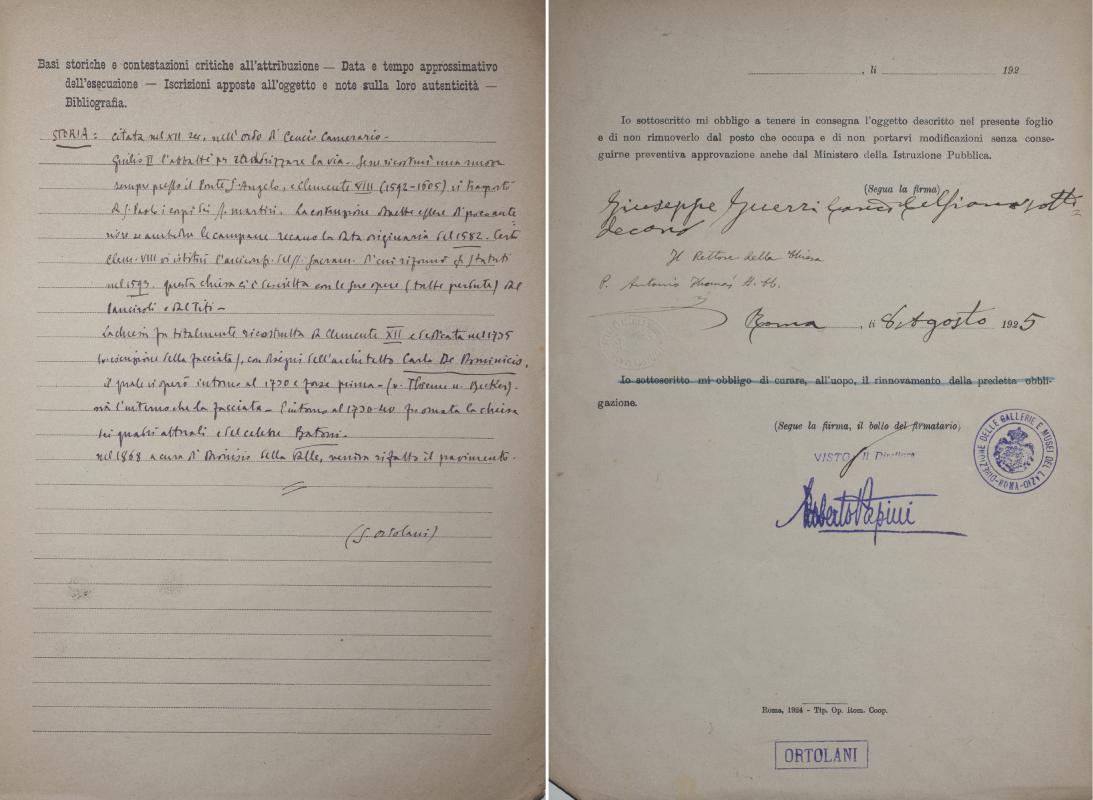 Basi storiche e contestazioni critiche all'attribuzione — Data e tempo approssimativo
dell'esecuzione — Iscrizioni apposte all'oggetto e note sulla loro autenticità —
Bibliografia.
STORIA: citata nel XII sec. nell'Ordo di Cencio Camerario -
Giulio II l'abbatté per la via. Se ne ricostruì una nuova
sempre presso il Ponte S. Angelo, e Clemente VIII (1592-1605) vi trasportò
da S. Paolo i corpi dei martiri. La costruzione dovette essere di poco ante=
riore se ambedue le campane recano la data originaria del 1582. Certo
Clem. VIII vi istituì l'arciconfr. del SS. Sacram. di cui riformò gli statuti
nel 1593. questa chiesa ci è descritta con le sue opere (tutte perdute) dal
Panciroli e dal Titi -
La chiesa fu totalmente ricostrutta da Clemente XII e dedicata nel 1735
(v. iscrizione della facciata), con disegni dell'architetto Carlo De Dominicis,
il quale vi operò intorno al 1730 e forse prima - (v. Thieme u. Becker).
sia l'interno che la facciata - Intorno al 1730-40 fu ornata la chiesa
dei quadri attuali e del celebre Batoni.
nel 1868 a cura di Dionisio della Valle, veniva rifatto il pavimento.
(S. Ortolani)
, li 192
Io sottoscritto mi obbligo a tenere in consegna l'oggetto descritto nel presente foglio
e di non rimuoverlo dal posto che occupa e di non portarvi modificazioni senza conse-
guirne preventiva approvazione anche dal Ministero della Istruzione Pubblica.
(Segua la firma)
Giuseppe Guerri Canco Celsiano sotto=
decano
Il Rettore della Chiesa
P. Antonio Thomas
Roma, li 8 Agosto 1925
Io sottoscritto mi obbligo di curare, all'uopo, il rinnovamento della predetta obbli-
gazione.
(Segue la fiirma, il bollo del firmatario)
VISTO Il Direttore
DIREZIONE DELLE GALLERIE E MUSEI DEL LAZIO-ROMA-
Roberto Papini
Roma, 1924 - Tip. Op. Rom. Coop.
ORTOLANI